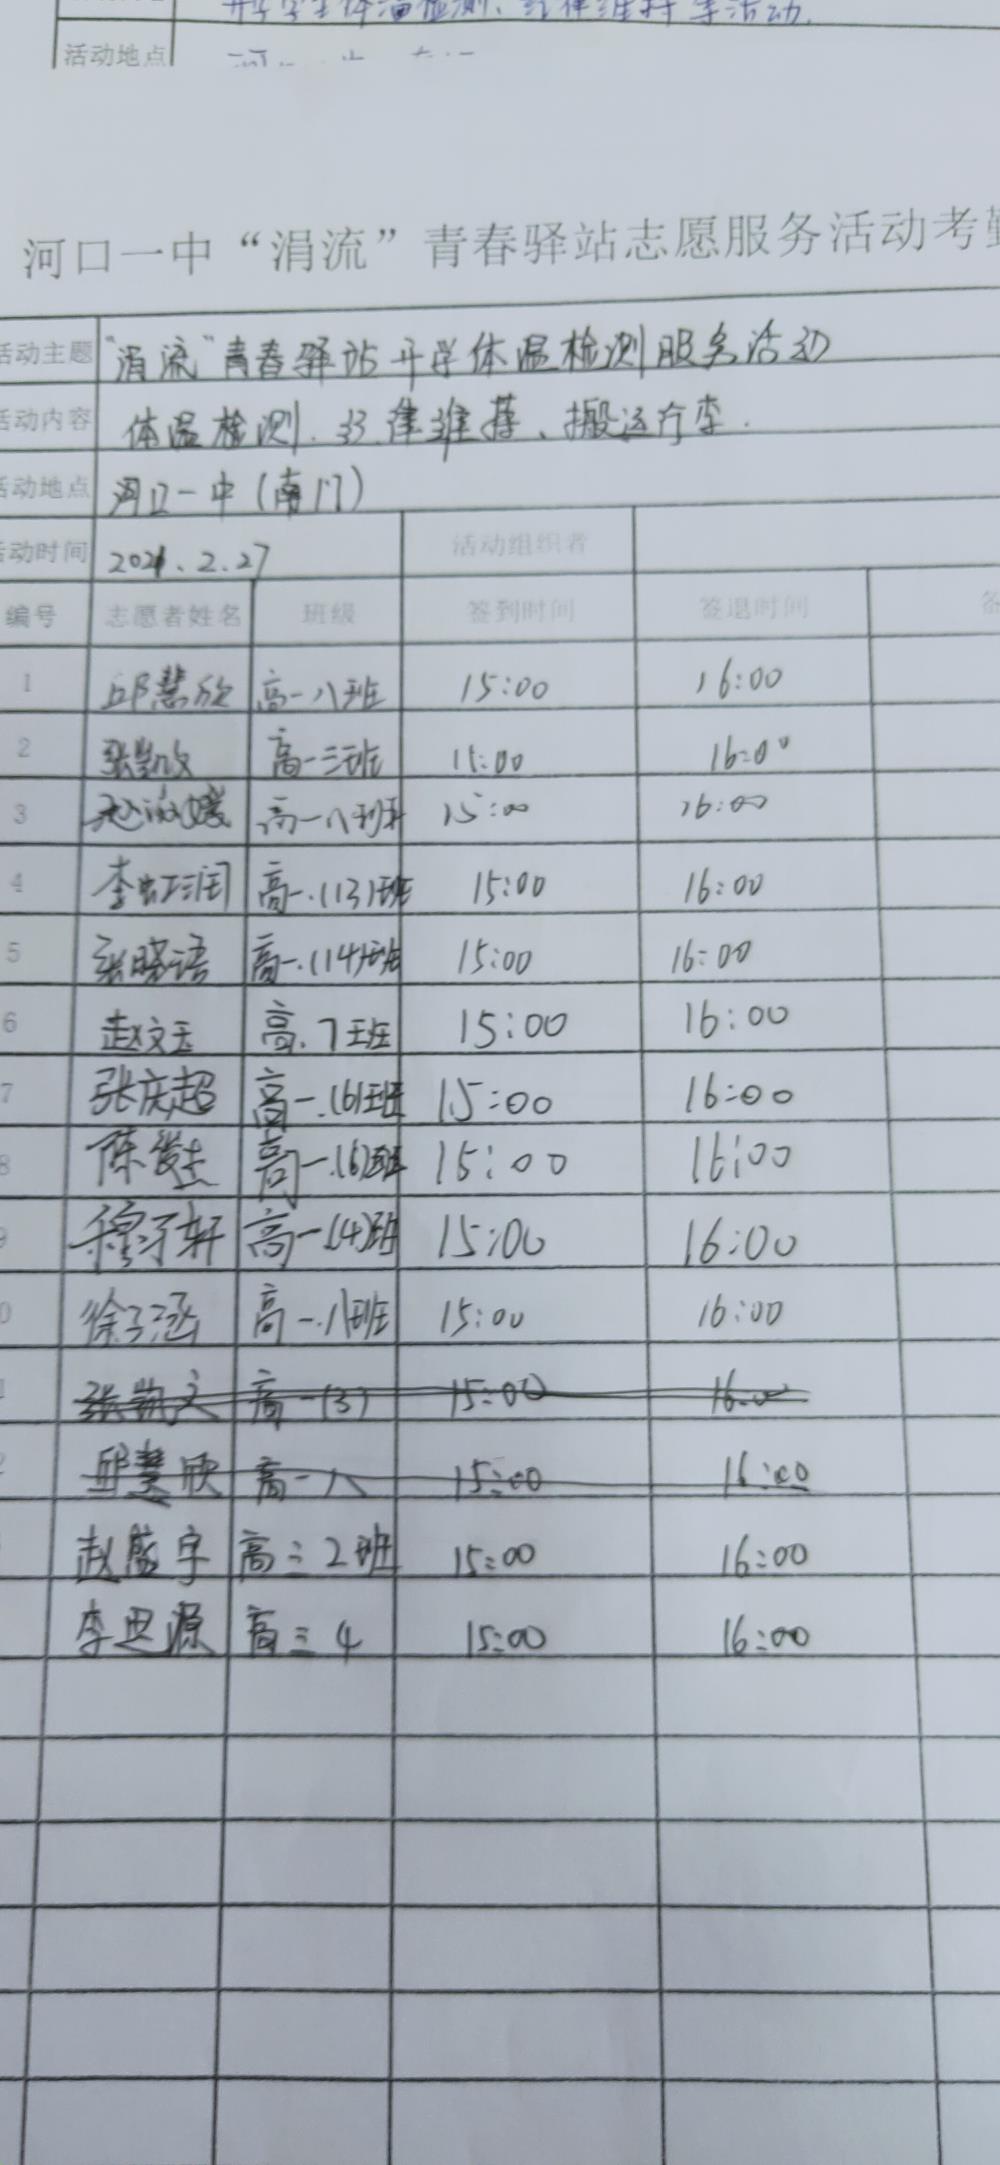 活动地点
河口一中“涓流”青春驿站志愿服务活动考勤
活动主题 “涓流”青春驿站开学体温检测服务活动
活动内容 体温检测、纪律维持、搬运行李.
活动地点 河口一中(南门)
活动时间 2021.2.27 活动组织者
编号 志愿者姓名 班级 签到时间 签退时间
1 邱慧欣 高一八班 15:00 16:00
2 张凯文 高一三班 15:00 16:00
3 高一八班 15:00 16:00
4 李虹润 高一.(13)班 15:00 16:00
5 张晓语 高一.(14)班 15:00 16:00
6 赵文玉 高.7班 15:00 16:00
7 张庆超 高一.(6)班 15:00 16:00
8 陈俊杰 高一.(6)班 15:00 16:00
9 穆子轩 高一.(4)班 15:00 16:00
0 徐子涵 高一.八班 15:00 16:00
张凯文 高一(3) 15:00 16:00
2 邱慧欣 高一八 15:00 16:00
赵盛宇 高三2班 15:00 16:00
李思源 高三4 15:00 16:00